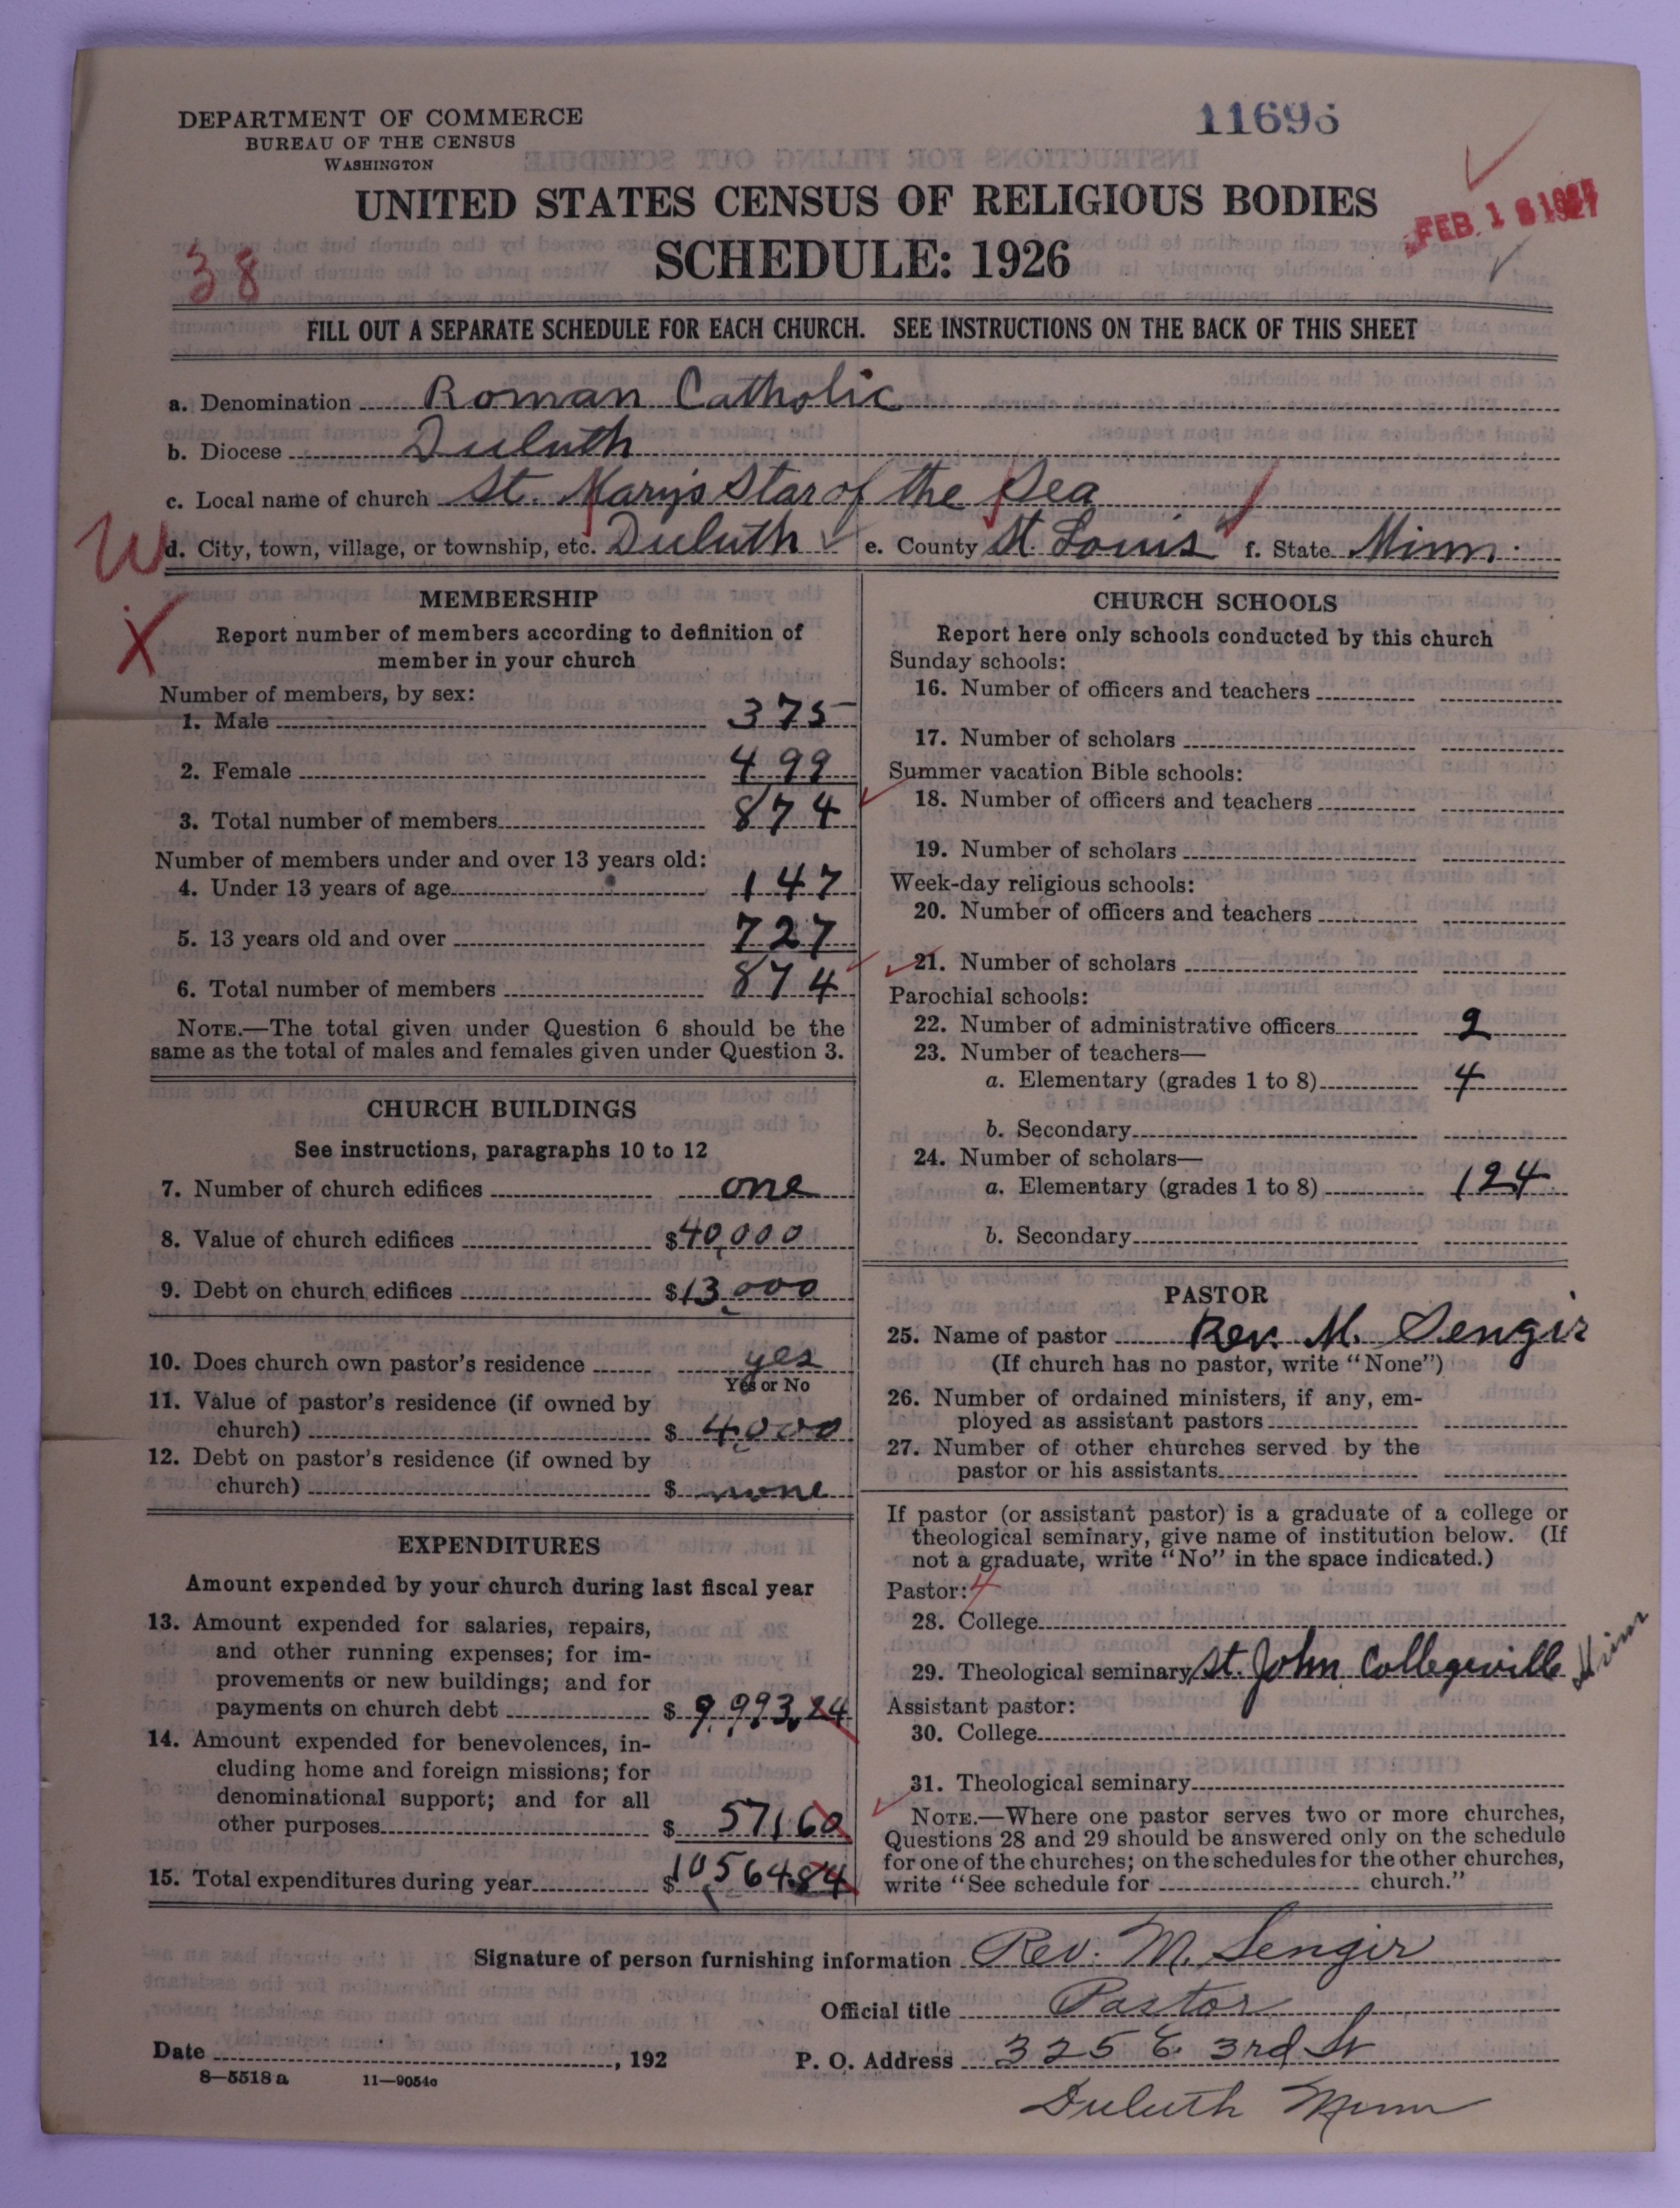 DEPARTMENT OF COMMERCE
BUREAU OF THE CENSUS
WASHINGTON
11696
UNITED STATES CENSUS OF RELIGIOUS BODIES
SCHEDULE: 1926
FEB 18 1927
38
FILL OUT A SEPARATE SCHEDULE FOR EACH CHURCH. SEE INSTRUCTIONS ON THE BACK OF THIS SHEET
a. Denomination Roman Catholic
b. Diocese Duluth
c. Local name of church St. Mary's Star of the Sea
d. City, town, village, or township, etc. Duluth e. County St. Louis f. State Minn.
W
X
MEMBERSHIP
Report number of members according to definition of
member in your church
Number of members, by sex:
1. Male 375
2. Female 499
3. Total number of members 874
Number of members under and over 13 years old:
4. Under 13 years of age 147
5. 13 years old and over 727
6. Total number of members 874
NOTE.—The total given under Question 6 should be the
same as the total of males and females given under Question 3.
CHURCH BUILDINGS
See instructions, paragraphs 10 to 12
7. Number of church edifices one
8. Value of church edifices $40,000
9. Debt on church edifices $13,000
10. Does church own pastor's residence yes
Yes or No
11. Value of pastor's residence (if owned by
church) $4,000
12. Debt on pastor's residence (if owned by
church) $none
EXPENDITURES
Amount expended by your church during last fiscal year
13. Amount expended for salaries, repairs,
and other running expenses; for im-
provements or new buildings; and for
payments on church debt $9,993.24
14. Amount expended for benevolences, in-
cluding home and foreign missions; for
denominational support; and for all
other purposes $571.60
15. Total expenditures during year $10,564.84
CHURCH SCHOOLS
Report here only schools conducted by this church
Sunday schools:
16. Number of officers and teachers
17. Number of scholars
Summer vacation Bible schools:
18. Number of officers and teachers
19. Number of scholars
Week-day religious schools:
20. Number of officers and teachers
21. Number of scholars
Parochial schools:
22. Number of administrative officers 2
23. Number of teachers—
a. Elementary (grades 1 to 8) 4
b. Secondary
24. Number of scholars—
a. Elementary (grades 1 to 8) 124
b. Secondary
PASTOR
25. Name of pastor Rev. M. Sengir
(If church has no pastor, write "None")
26. Number of ordained ministers, if any, em-
ployed as assistant pastors
27. Number of other churches served by the
pastor or his assistants
If pastor (or assistant pastor) is a graduate of a college or
theological seminary, give name of institution below. (If
not a graduate, write "No" in the space indicated.)
Pastor: 4
28. College
29. Theological seminary St. John Collegeville Minn
Assistant pastor:
30. College
31. Theological seminary
NOTE.—Where one pastor serves two or more churches,
Questions 28 and 29 should be answered only on the schedule
for one of the churches; on the schedules for the other churches,
write "See schedule for church."
Signature of person furnishing information Rev. M. Sengir
Official title Pastor
Date , 192 P. O. Address 325 E. 3rd St
8—5518 a 11—9054c
Duluth Minn